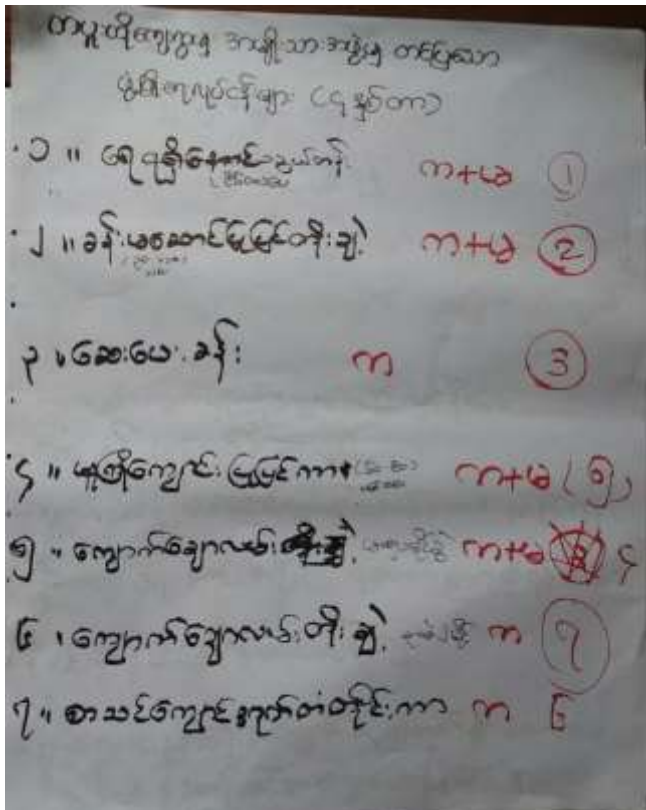 တပူးတို့ကျေးရွာမှ အမျိုးသားအဖွဲ့မှ တင်ပြသော
ဖွံ့ဖြိုးရေးလုပ်ငန်းများ (၄ နှစ်တာ)
၁ ။ ရေ သွယ်တန်း က+မ 1
၂ ။ ခန်းမဆောင်ပြုပြင်တိုးချဲ့ က+မ 2
၃ ။ ဆေးပေးခန်း က 3
၄ ။ မူကြိုကျောင်းပြုပြင်ကာ က+မ (၅)
၅ ။ ကျောက်ချောလမ်း က+မ ၄
၆ ။ ကျောက်ချောလမ်းတိုးချဲ့ က ၇
၇ ။ စာသင်ကျောင်းခြံတံတိုင်းကာ က ၆